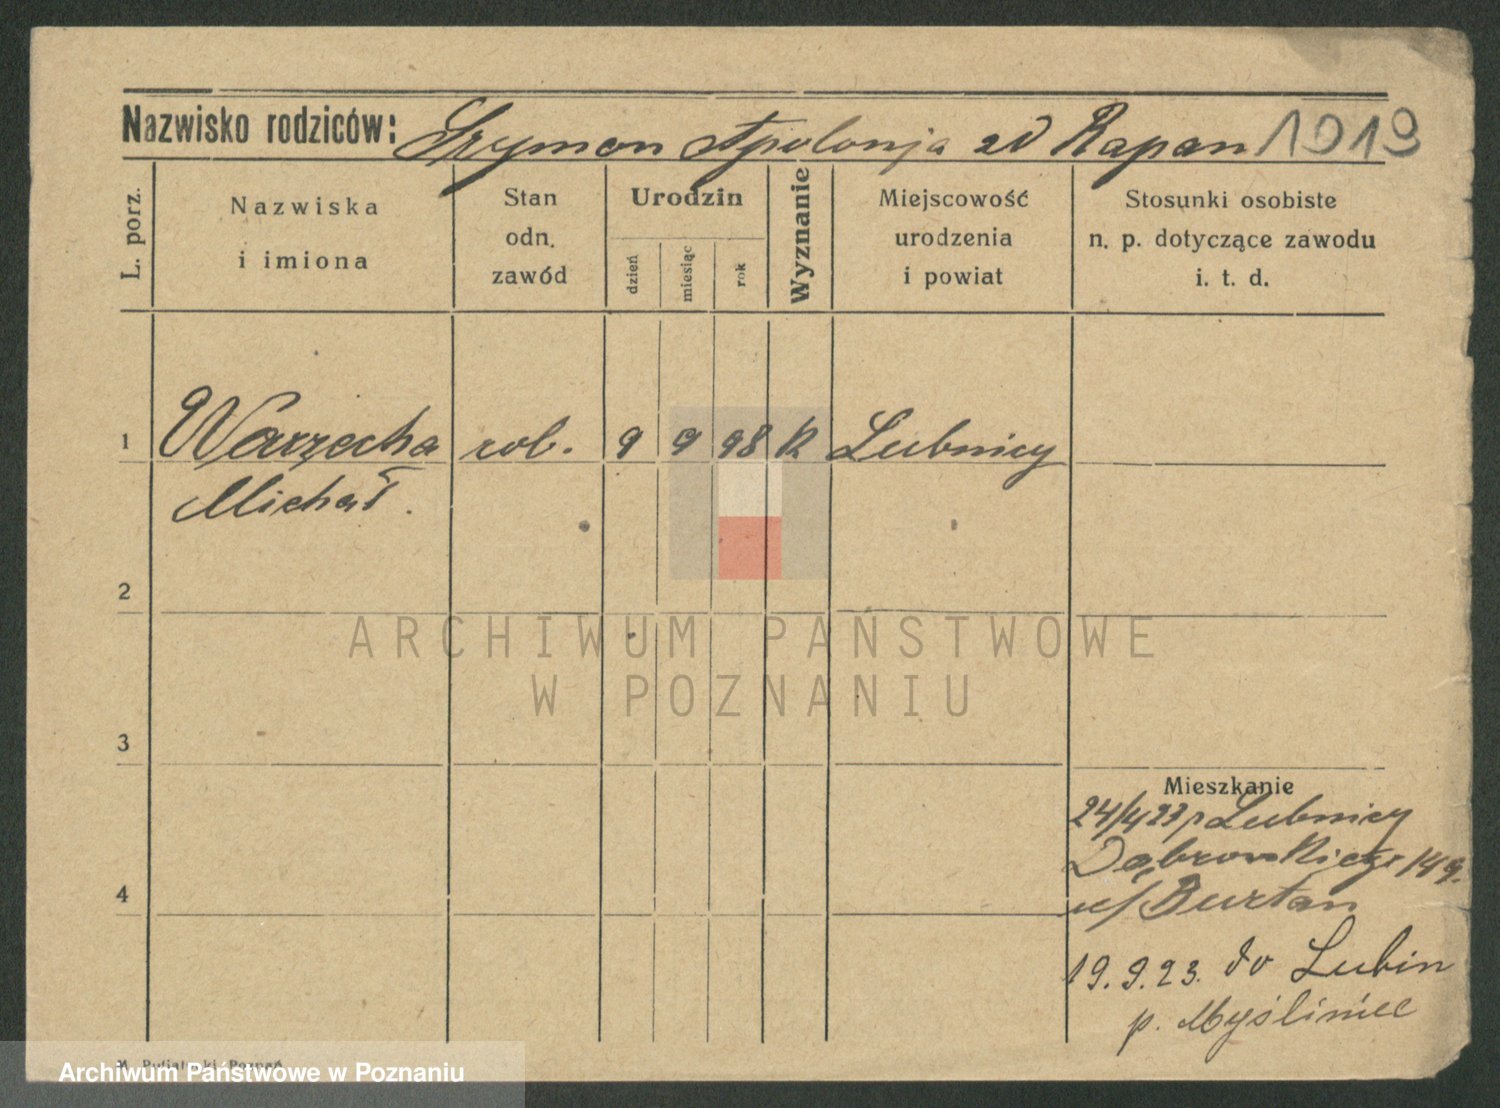 Nazwisko rodziców: Szymon Apolonja zd Rapan 1919
L. porz.
Nazwiska
i imiona
Stan
odn.
zawód
Urodzin
dzień
miesiąc
rok
Wyznanie
Miejscowość
urodzenia
i powiat
Stosunki osobiste
n. p. dotyczące zawodu
i. t. d.
1 Warzecha rob. 9 9 98 k Lubnicy
Michał.
2
ARCHIWUM PAŃSTWOWE
W POZNANIU
3
Mieszkanie
24/4 23 Lubnicy
149.
4
u/ Burtan
19.9.23. do Lubin
p. Myśliniec
Poznań
Archiwum Państwowe w Poznaniu